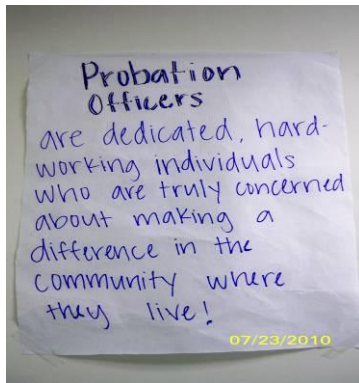 Probation
Officers
are dedicated, hard-
working individuals
who are truly concerned
about making a
difference in the
community where
they live!
07/23/2010